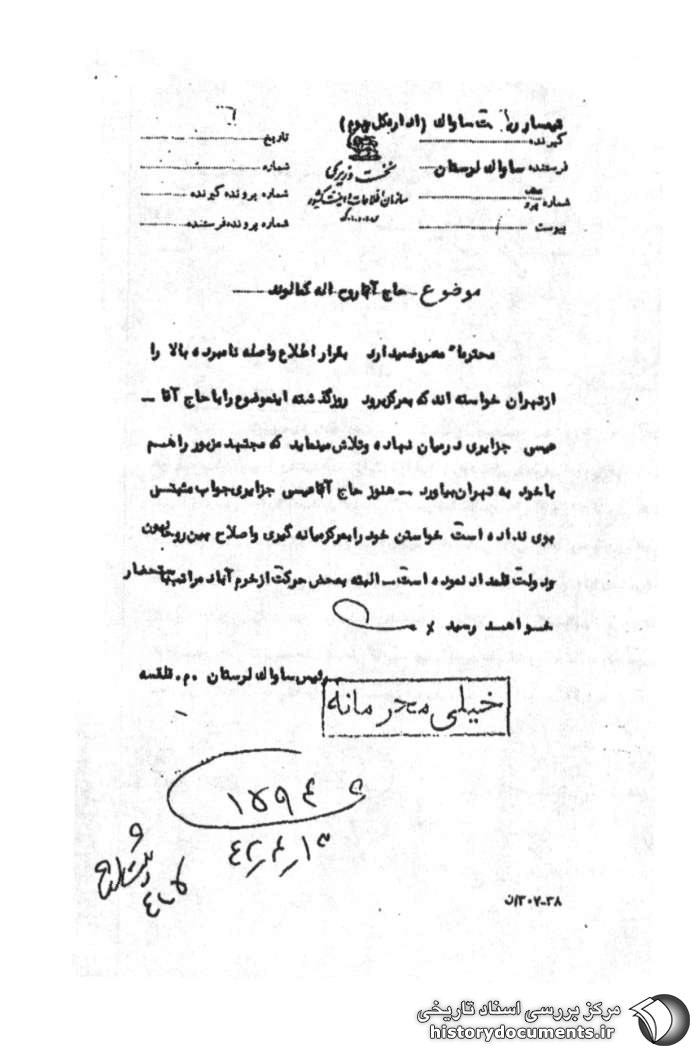 تیمسار ریاست ساواك (اداره کل سوم)
گیرنده
تاریخ
فرستنده ساواك لرستان
نخست وزیری
شماره
شماره پرونده گیرنده
سازمان اطلاعات و امنیت کشور
س.ا.و.ا.ك
شماره پرو
پیوست
شماره پرونده فرستنده
موضوع حاج آقا روح اله کمالوند
محترماً معروض میدارد بقرار اطلاع واصله نامبرده بالا را
از تهران خواسته اند که بمرکز برود روز گذشته اینموضوع را با حاج آقا –
عیسی جزایری در میان نهاده و تلاش مینماید که مجتهد مزبور را هم
با خود به تهران بیاورد – هنوز حاج آقا عیسی جزایری جواب مثبتی
بوی نداده است خواستن خود را بمرکز میانه گیری و اصلاح بین روحانیون
و دولت قلمداد نموده است – البته بمحض حرکت از خرم آباد مراتب باستحضار
خواهد رسید x
رئیس ساواك لرستان . م .
خیلی محرمانه
۳۰۷-۳۸/ن
مرکز بررسی اسناد تاریخی
historydocuments.ir